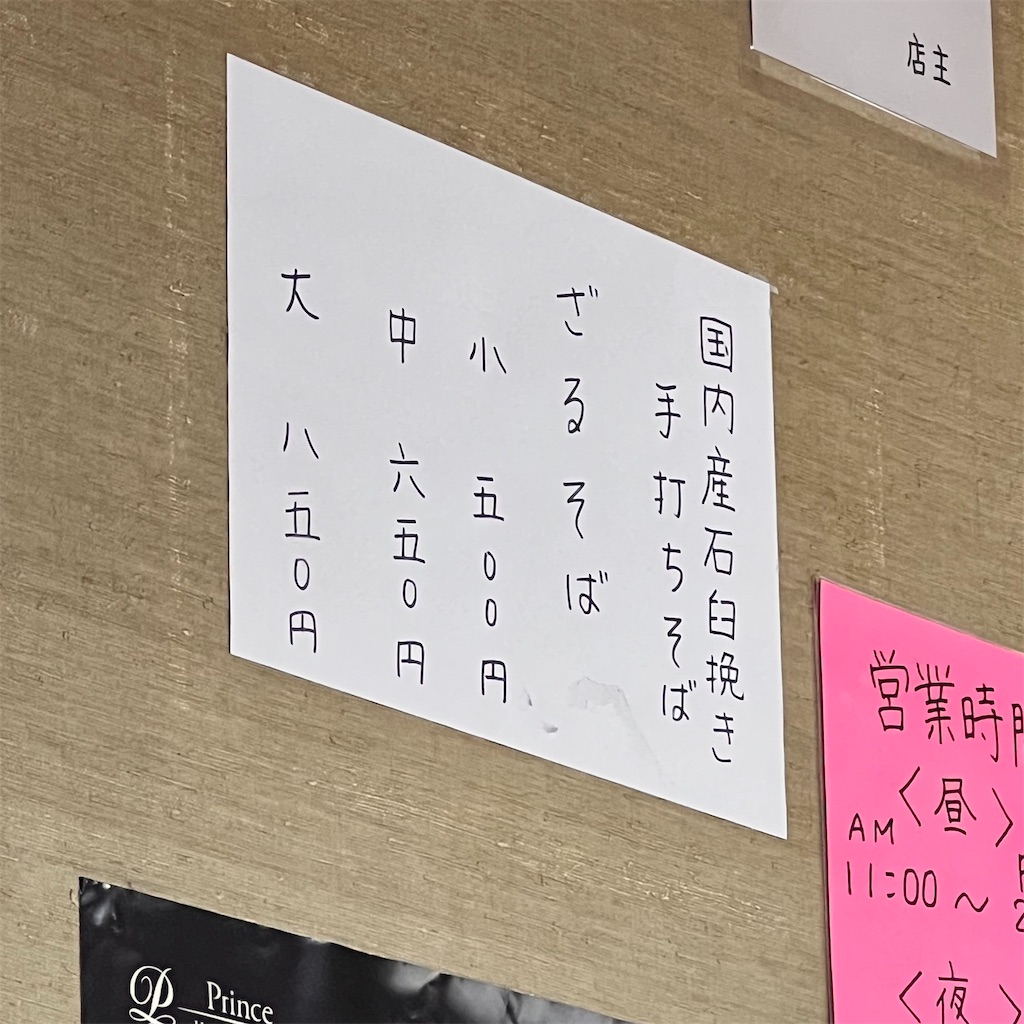 店主
国内産石臼挽き
手打ちそば
ざるそば
小 五〇〇円
中 六五〇円
大 八五〇円
営業時
〈昼〉
AM
11:00〜
〈夜〉
Prince